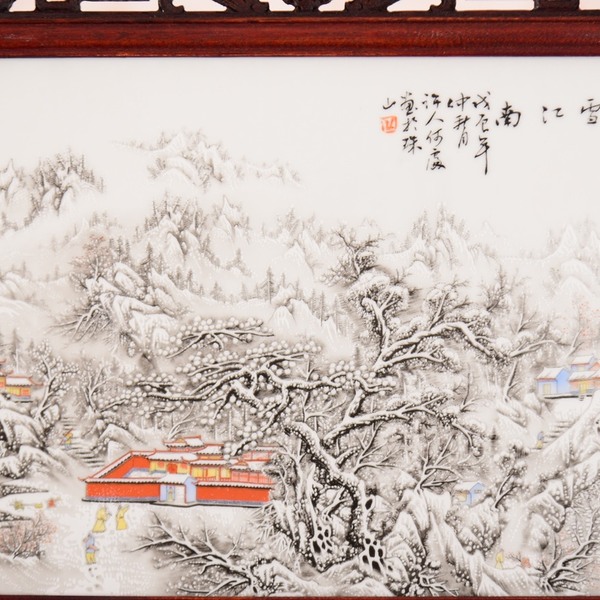 雪江南
戊辰年
仲秋月
許人何處
畫於珠
山